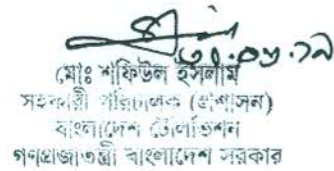 ৩০.০৬.১৯
মোঃ শফিউল ইসলাম
সহকারী পরিচালক (প্রশাসন)
বাংলাদেশ টেলিভিশন
গণপ্রজাতন্ত্রী বাংলাদেশ সরকার